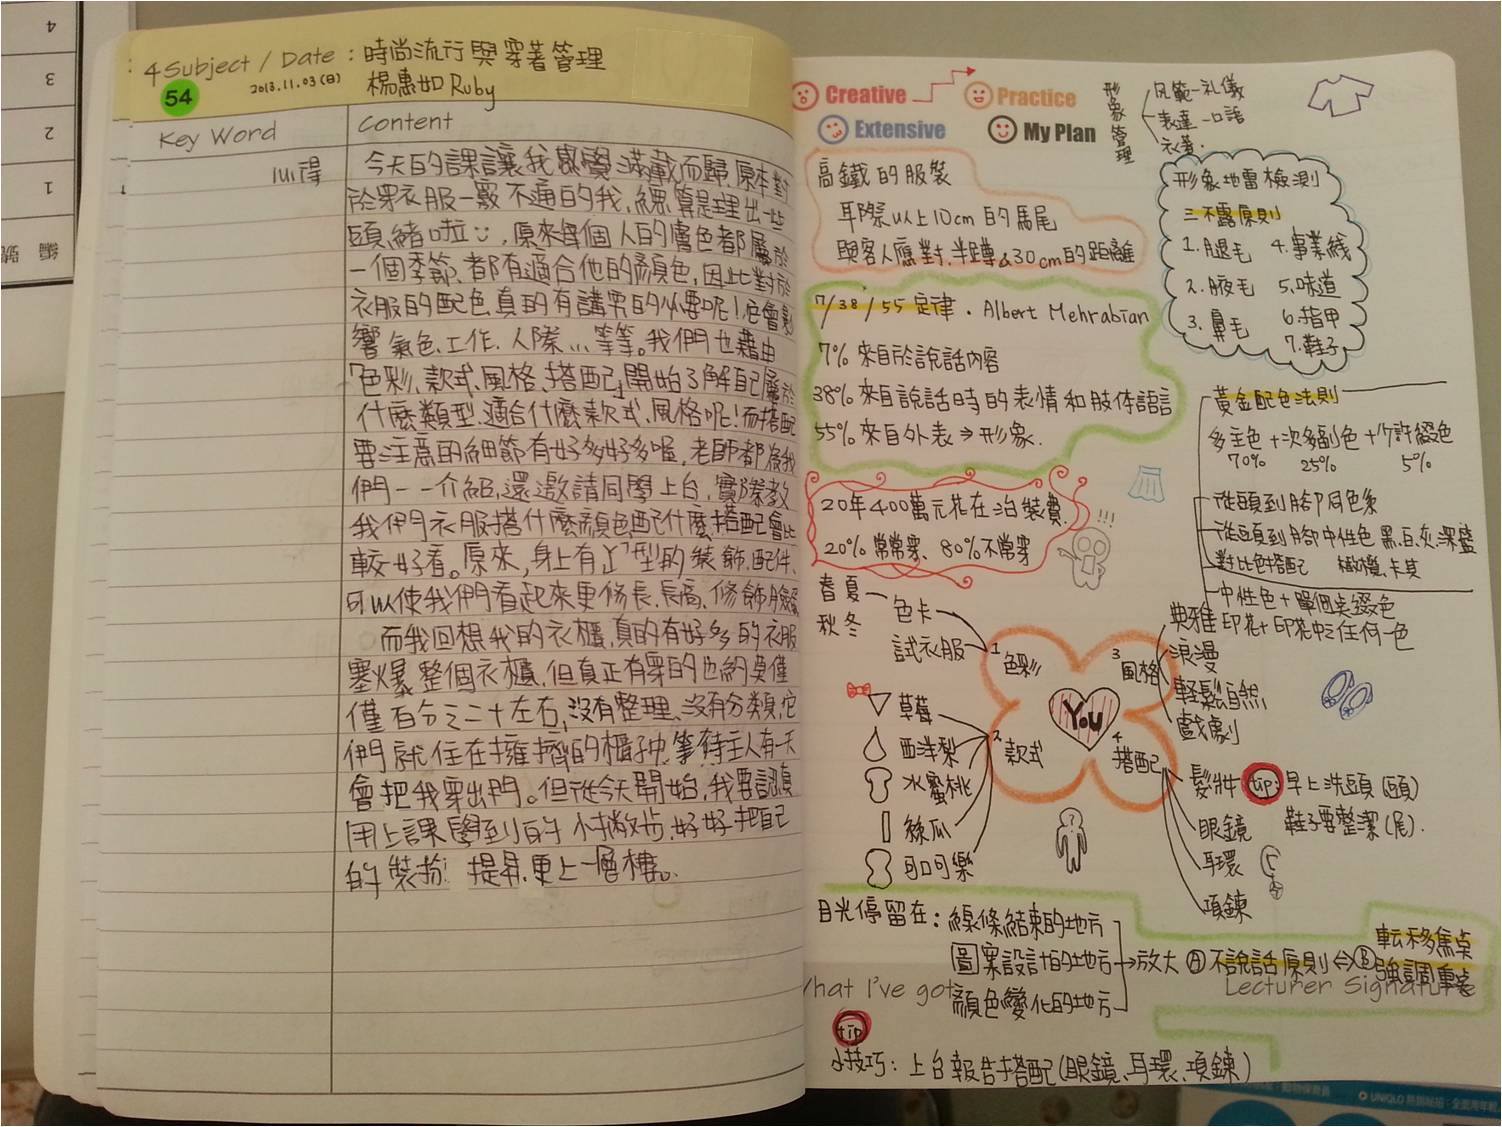 4 Subject / Date : 時尚流行與穿著管理
54
2013.11.03(日)
楊惠如 Ruby
Key Word
Content
心得
今天的課讓我感覺滿載而歸,原本對
於穿衣服一竅不通的我,總算是理出一些
頭緒啦,原來每個人的膚色都屬於
一個季節,都有適合他的顏色,因此對於
衣服的配色真的有講究的必要呢!它會影
響氣色、工作、人際...等等。我們也藉由
「色彩、款式、風格、搭配」開始了解自己屬於
什麼類型,適合什麼款式、風格呢!而搭配
要注意的細節有好多好多喔,老師都為我
們一一介紹,還邀請同學上台,實際教
我們衣服搭什麼顏色配什麼搭配會比
較好看。原來,身上有"Y"型的裝飾、配件、
可以使我們看起來更修長、長高、修飾臉
而我回想我的衣櫃,真的有好多的衣服
塞爆整個衣櫃,但真正有穿的也約莫僅
僅百分之二十左右,沒有整理、沒有分類,它
們就住在擁擠的櫃子中,等待主人有一天
會把我穿出門。但從今天開始,我要認真
用上課學到的小撇步,好好把自己
的裝扮提昇,更上一層樓。
Creative
Practice
Extensive
My Plan
形象管理
風範—礼儀
表達—口語
衣著
高鐵的服裝
耳際以上10cm的馬尾
與客人應對,半蹲&30cm的距離
形象地雷檢測
三不露原則
1.腿毛 4.事業線
2.腋毛 5.味道
3.鼻毛 6.指甲
7.鞋子
7/38/55 定律 . Albert Mehrabian
7% 來自於說話內容
38% 來自說話時的表情和肢体語言
55% 來自外表→形象.
黃金配色法則
多主色+次多副色+少許綴色
70% 25% 5%
從頭到腳同色系
從頭到腳中性色 黑、白、灰、深藍
對比色搭配 橄欖、卡其
中性色+單個点綴色
印花+印花中之任何一色
20年400萬元花在治裝費.
20%常常穿、80%不常穿
!!!
春夏
秋冬
色卡
試衣服
1 色彩
3 風格
典雅
浪漫
輕鬆自然
戲劇
You
2 款式
草莓
西洋梨
水蜜桃
絲瓜
可口可樂
4 搭配
髮妝
眼鏡
耳環
項鍊
tip: 早上洗頭(頭)
鞋子要整潔(尾).
目光停留在:線條結束的地方
圖案設計的地方
顏色變化的地方
→放大 Ⓐ不說話原則⇔Ⓑ轉移焦点
強調重点
What I've got
Lecturer Signature
tip
小技巧:上台報告搭配(眼鏡、耳環、項鍊)
4
3
2
1
編號
UNIQLO